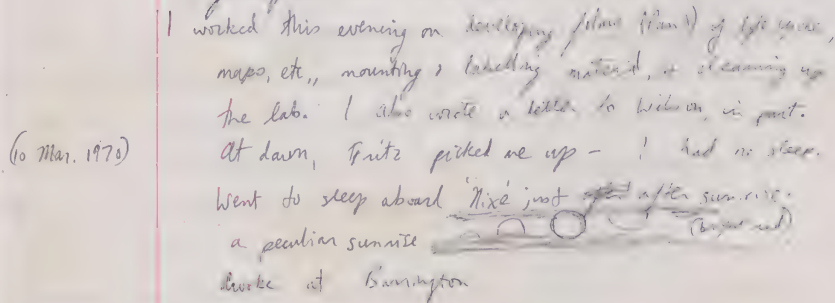 I worked this evening on developing films (Pan X) of
maps, etc., mounting & labelling material, & cleaning up
the lab. I also wrote a letter to Wilson, in part.
(10 Mar. 1970) At dawn, Fritz picked me up - I had no sleep.
Went to sleep aboard 'Nixe' just after sunrise.
a peculiar sunrise (bright red)
Awoke at Barrington